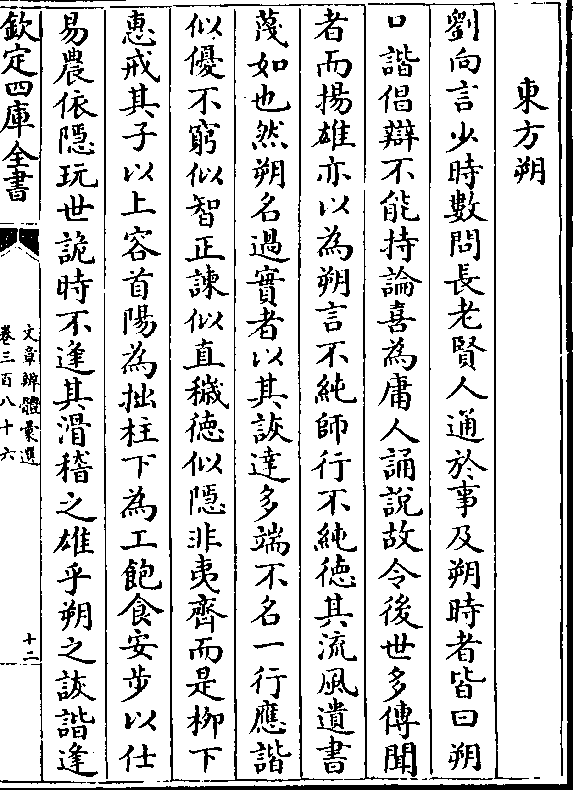 東方朔
劉向言少時數問長老賢人通於事及朔時者皆曰朔
口諧倡辯不能持論喜為庸人誦說故令後世多傳聞
者而揚雄亦以為朔言不純師行不純德其流風遺書
蔑如也然朔名過實者以其詼達多端不名一行應諧
似優不窮似智正諫似直穢德似隱非夷齊而是柳下
惠戒其子以上容首陽為拙柱下為工飽食安步以仕
易農依隱玩世詭時不逢其滑稽之雄乎朔之詼諧逢
欽定四庫全書
文章辨體彙選
卷三百八十六
十二